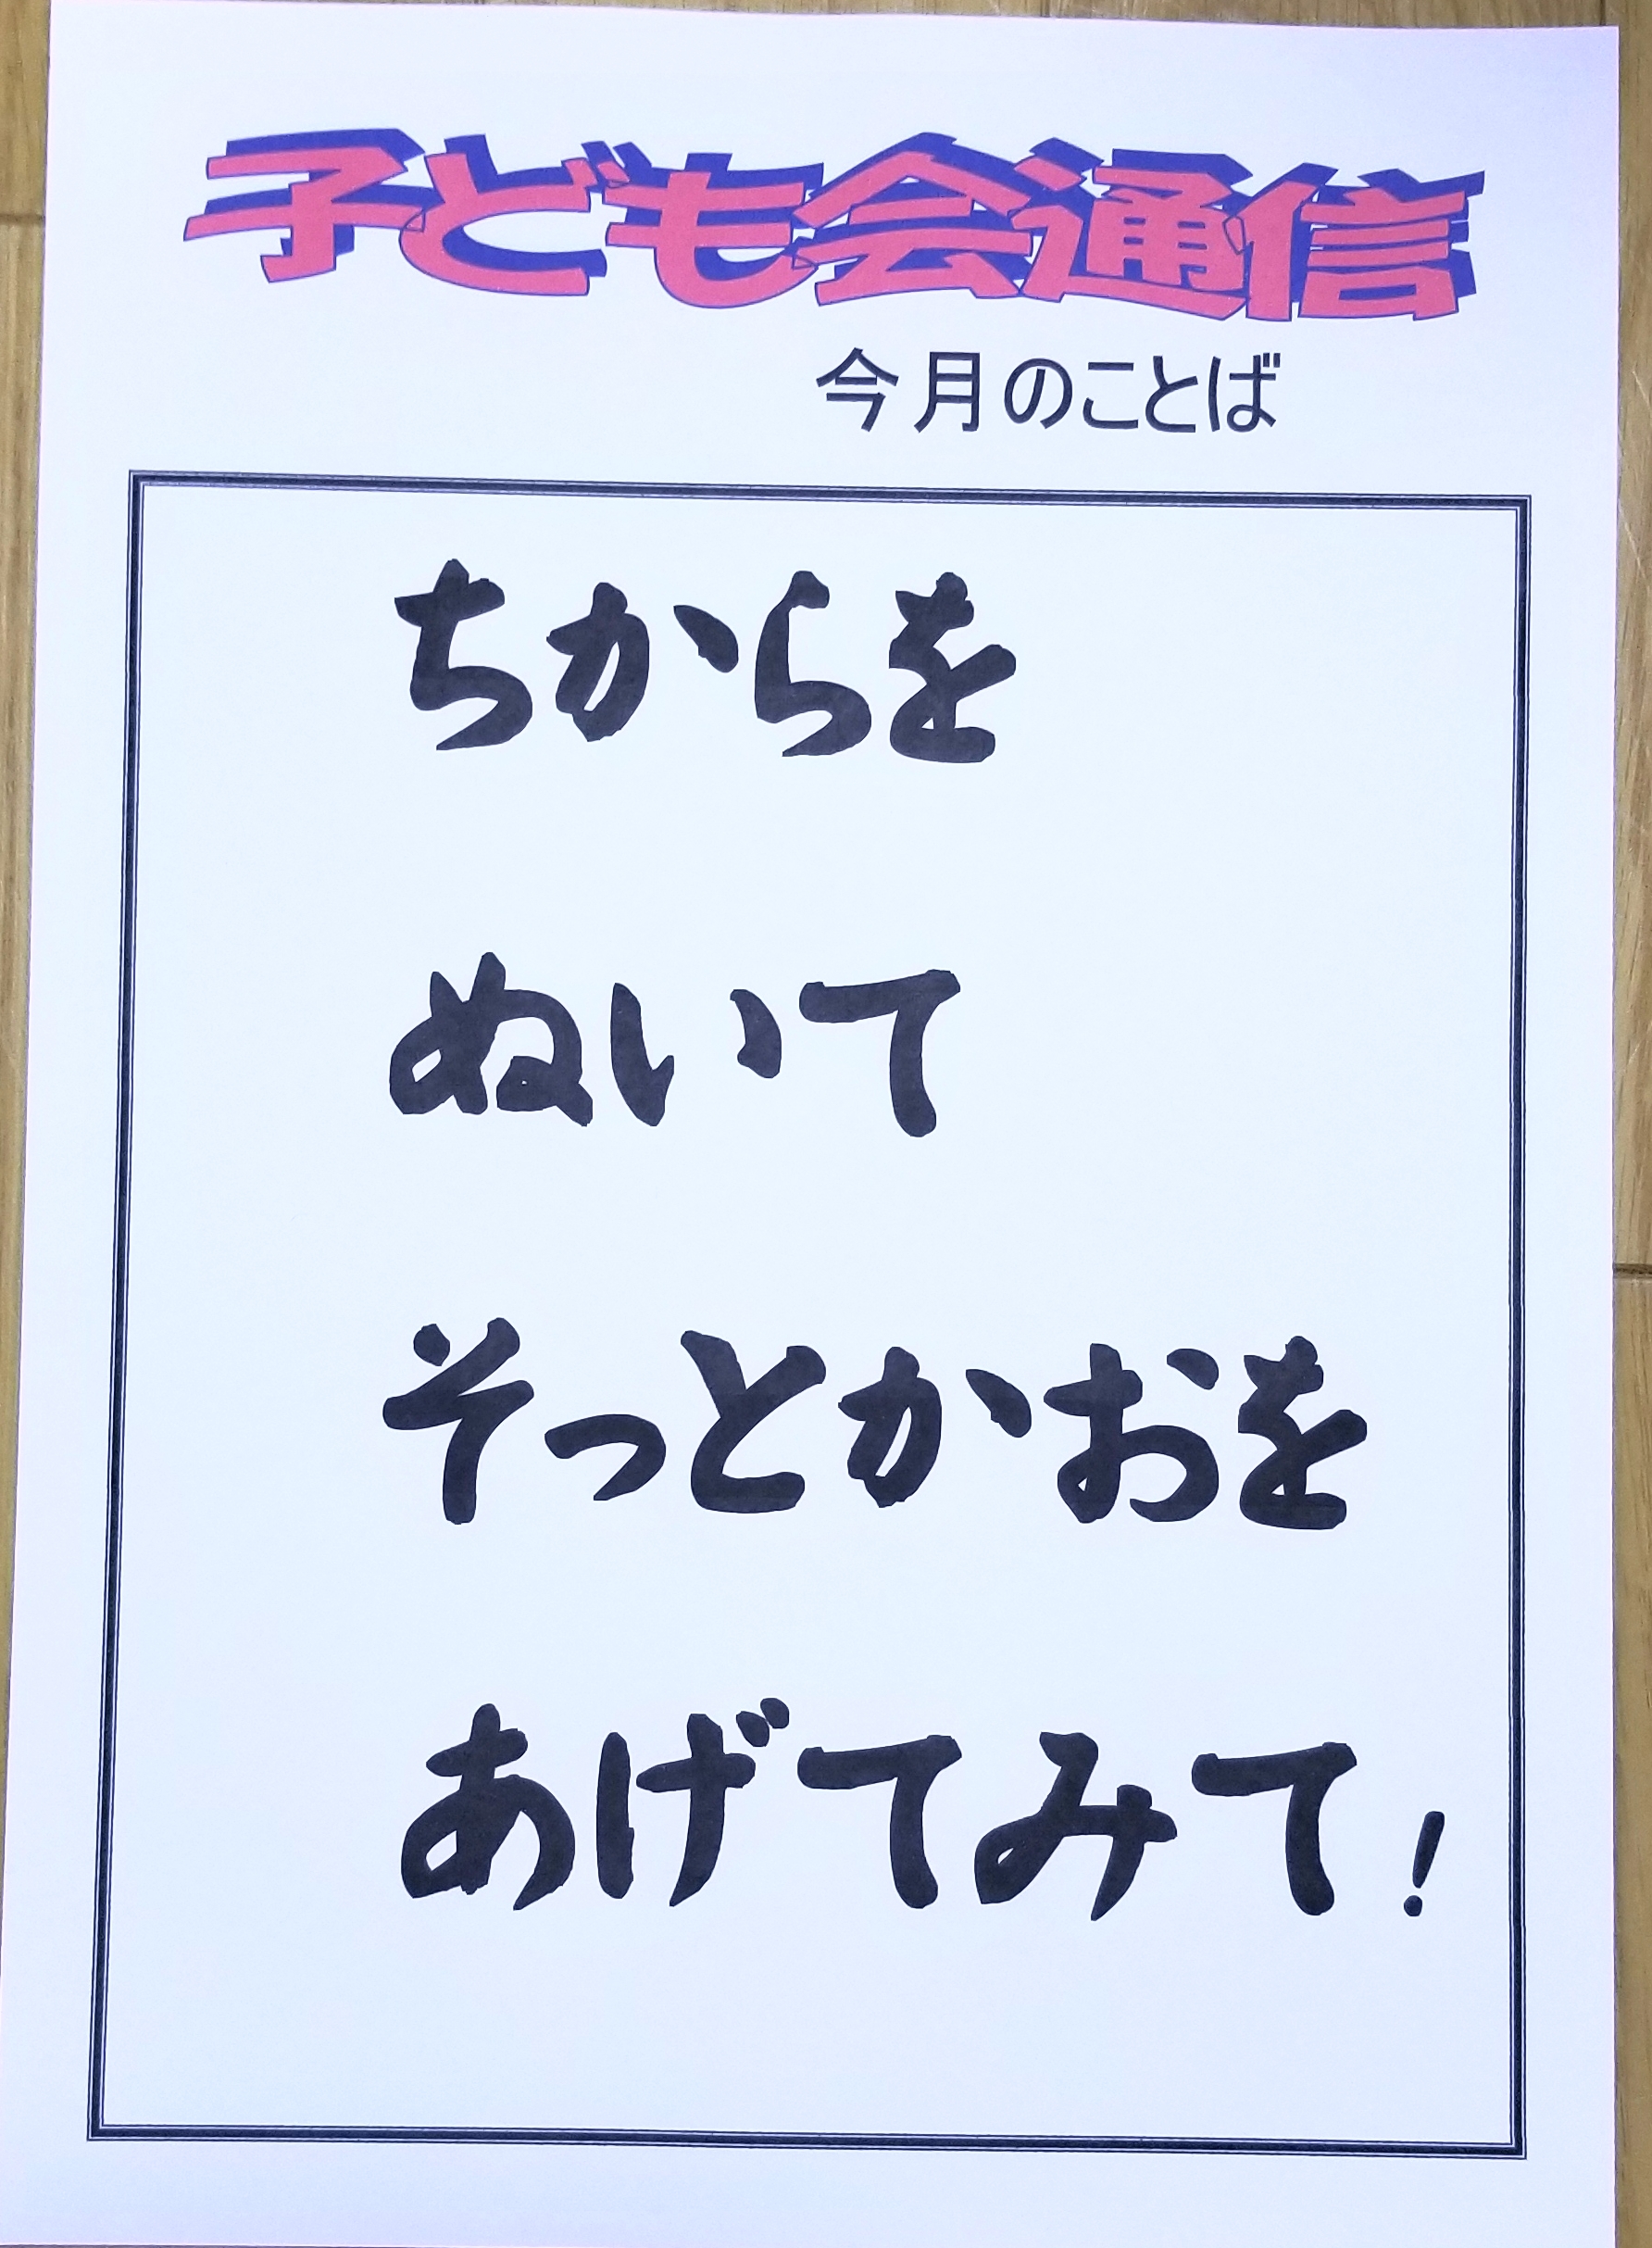 子ども会通信
今月のことば
ちからを
ぬいて
そっとかおを
あげてみて!